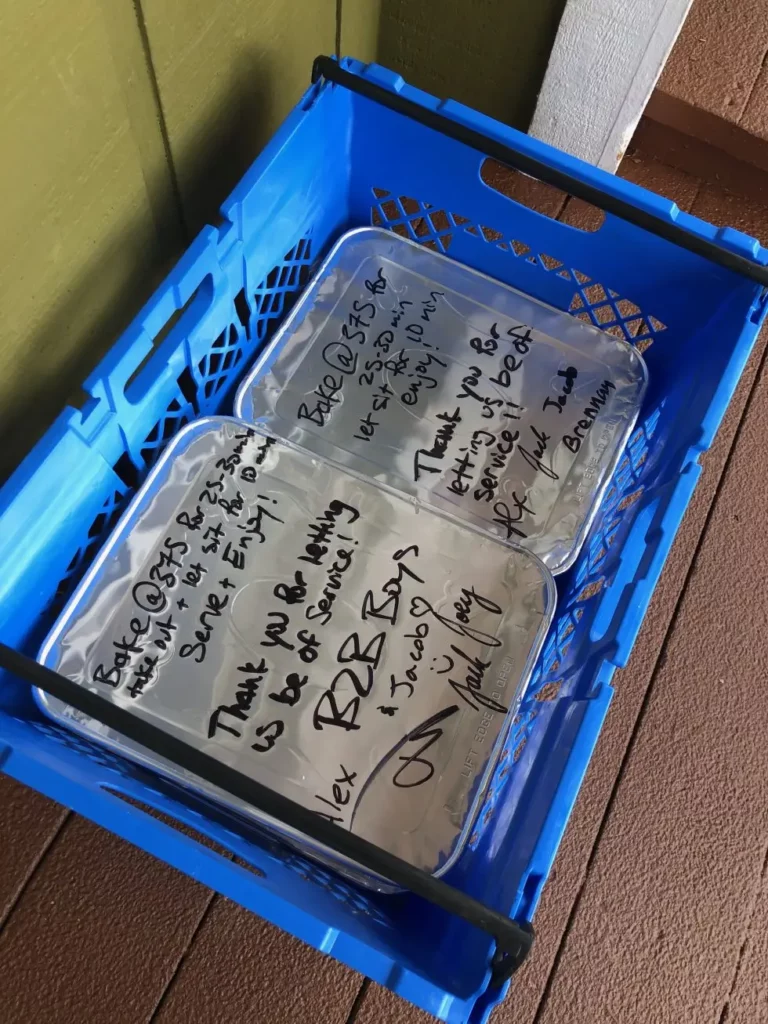 Bake @ 375 for
25-30 min
let sit for 10 min
enjoy!
Thank you for
letting us be of
service!!
Jack Jacob
Brennan
Bake @ 375 for 25-30 min
take out + let sit for 10 min
Serve + Enjoy!
Thank you for letting
us be of Service!
B2B Boys
& Jacob ♡
Jack Joey
Alex
LIFT EDGE TO OPEN